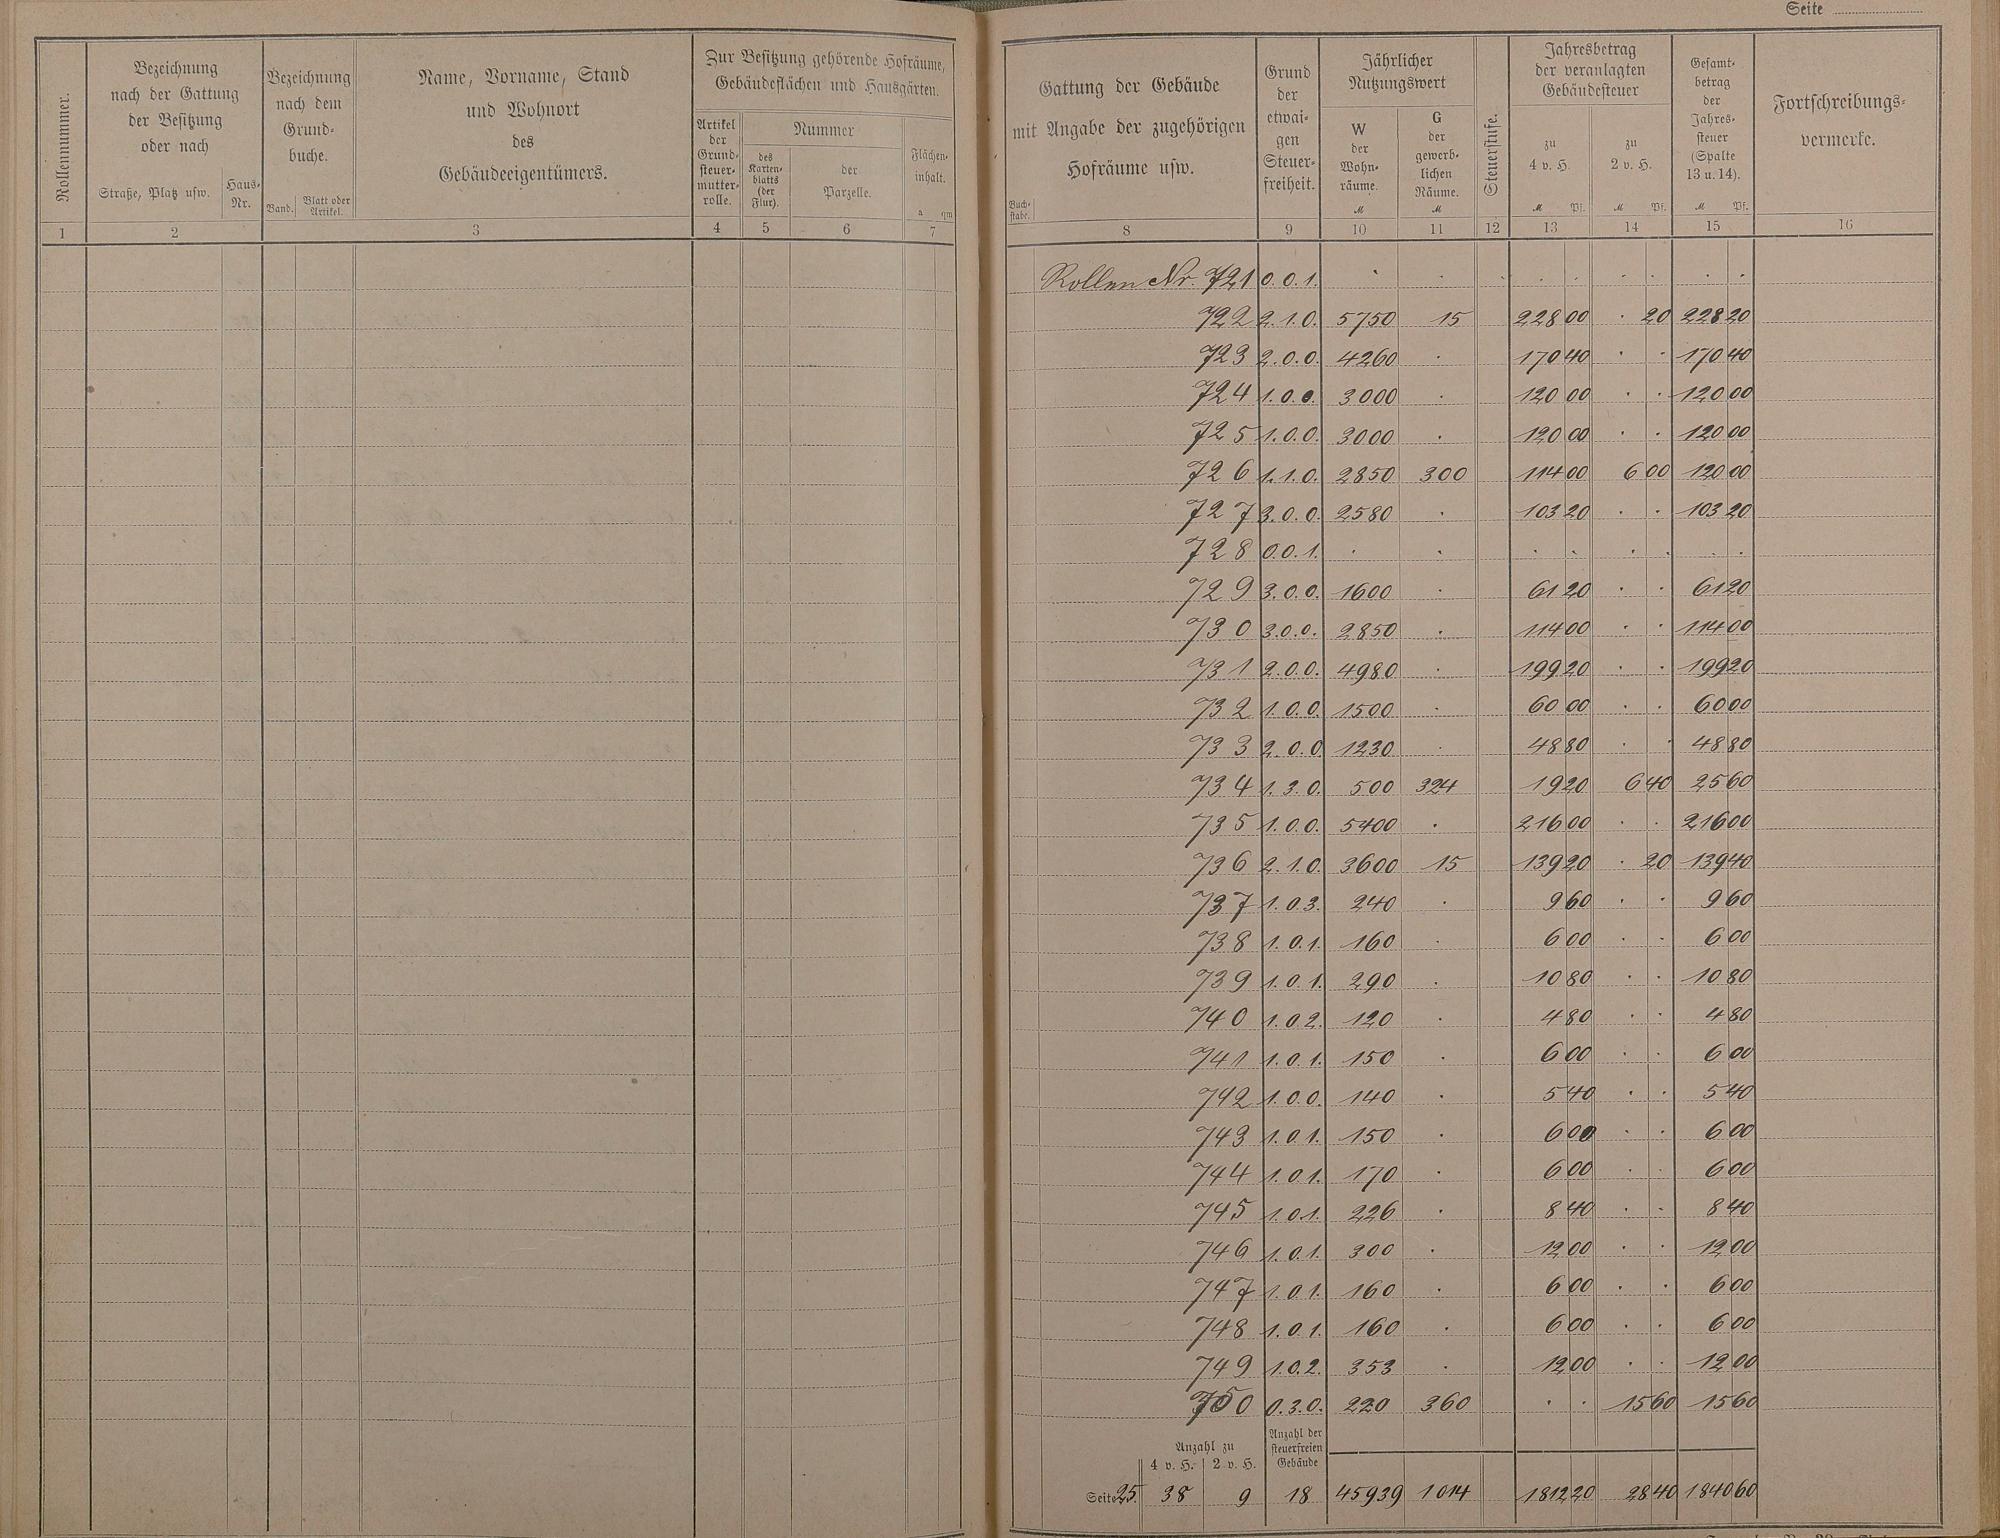 Seite
Rollennummer.
Bezeichnung
nach der Gattung
der Besitzung
oder nach
Straße, Platz usw.
Haus-
Nr.
Bezeichnung
nach dem
Grund-
buche.
Band.
Blatt oder
Artikel.
Name, Vorname, Stand
und Wohnort
des
Gebäudeeigentümers.
Zur Besitzung gehörende Hofräume,
Gebäudeflächen und Hausgärten.
Artikel
der
Grund-
steuer-
mutter-
rolle.
Nummer
des
Karten-
blatts
(der
Flur).
der
Parzelle.
Flächen-
inhalt.
a qm
1 2 3 4 5 6 7
Gattung der Gebäude
mit Angabe der zugehörigen
Hofräume usw.
Buch-
stabe.
Grund
der
etwai-
gen
Steuer-
freiheit.
Jährlicher
Nutzungswert
W
der
Wohn-
räume.
M
G
der
gewerb-
lichen
Räume.
M
Steuerstufe.
Jahresbetrag
der veranlagten
Gebäudesteuer
zu
4 v. H.
M Pf.
zu
2 v. H.
M Pf.
Gesamt-
betrag
der
Jahres-
steuer
(Spalte
13 u. 14).
M Pf.
Fortschreibungs-
vermerke.
8 9 10 11 12 13 14 15 16
Rollen Nr. 721 0.0.1. . . . . . . . . .
722 2.1.0. 5750 15 228 00 . 20 228 20
723 2.0.0. 4260 . 170 40 . . 170 40
724 1.0.0. 3000 . 120 00 . . 120 00
725 1.0.0. 3000 . 120 00 . . 120 00
726 1.1.0. 2850 300 114 00 6 00 120 00
727 3.0.0. 2580 . 103 20 . . 103 20
728 0.0.1. . . . . . . . .
729 3.0.0. 1600 . 61 20 . . 61 20
730 3.0.0. 2850 . 114 00 . . 114 00
731 2.0.0. 4980 . 199 20 . . 199 20
732 1.0.0. 1500 . 60 00 . . 60 00
733 2.0.0 1230 . 48 80 . . 48 80
734 1.3.0. 500 324 19 20 6 40 25 60
735 1.0.0. 5400 . 216 00 . . 216 00
736 2.1.0. 3600 15 139 20 . 20 139 40
737 1.0.3. 240 . 9 60 . . 9 60
738 1.0.1. 160 . 6 00 . . 6 00
739 1.0.1. 290 . 10 80 . . 10 80
740 1.0.2. 120 . 4 80 . . 4 80
741 1.0.1. 150 . 6 00 . . 6 00
742 1.0.0. 140 . 5 40 . . 5 40
743 1.0.1. 150 . 6 00 . . 6 00
744 1.0.1. 170 . 6 00 . . 6 00
745 1.0.1. 226 . 8 40 . . 8 40
746 1.0.1. 300 . 12 00 . . 12 00
747 1.0.1. 160 . 6 00 . . 6 00
748 1.0.1. 160 . 6 00 . . 6 00
749 1.0.2. 353 . 12 00 . . 12 00
750 0.3.0. 220 360 . . 15 60 15 60
Anzahl zu
4 v. H. 2 v. H.
Anzahl der
steuerfreien
Gebäude
Seite 25. 38 9 18 45939 1014 1812 20 28 40 1840 60